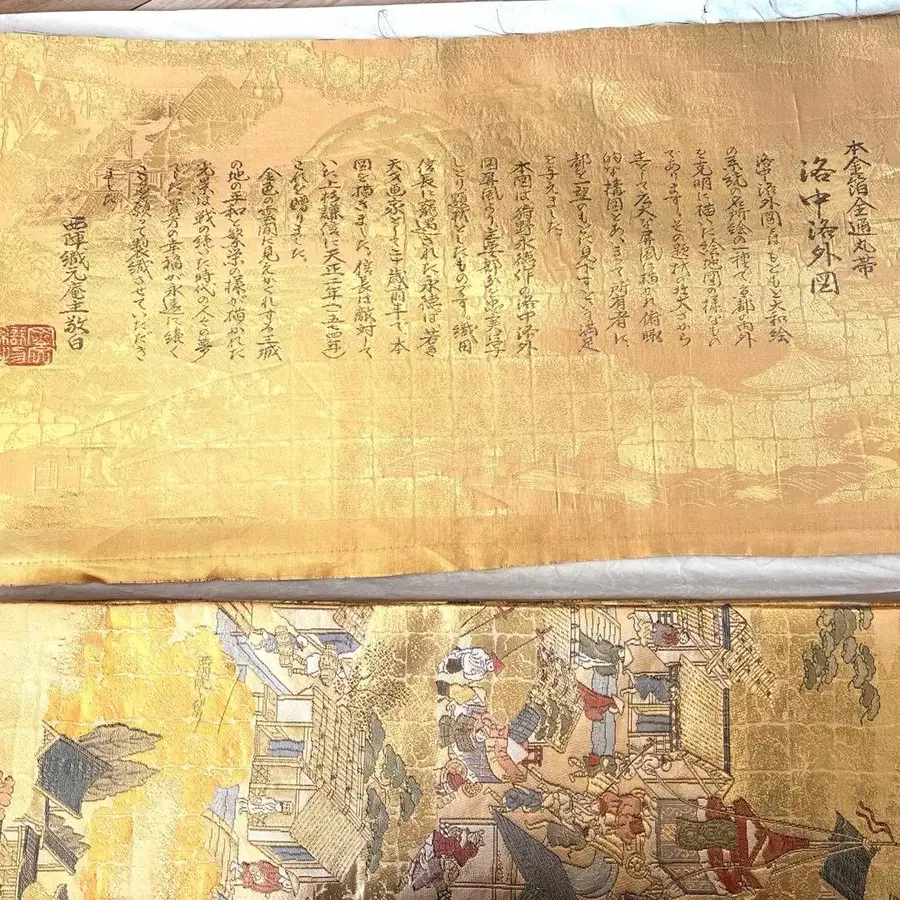 本金箔全通丸帯
洛中洛外図
洛中洛外図はもともと大和絵
の系統の名所絵の一種で、都の内外
を克明に描いた絵地図の様なもの
であります。その題材は大きさから
して広大な屏風に描かれ俯瞰
的な構図とあいまって所有者に
都を一望のもとに見下すという満足
を与えました。
本図は狩野永徳作の洛中洛外
図屏風より
しとり題材としたものです。織田
信長に寵遇された永徳は若き
天才画家として二十三歳前半で、本
図を描きました。信長は敵対して
いた上杉謙信に天正二年(一五七四年)
これを贈りました。
金色の雲間に見えかくれする王城
の地の平和と繁栄の様が描かれた
光景は戦の続いた時代の人々の夢
でした。貴方の幸福が永遠に続く
さまを願って製織させていただき
ました。
西陣織元庵主敬白